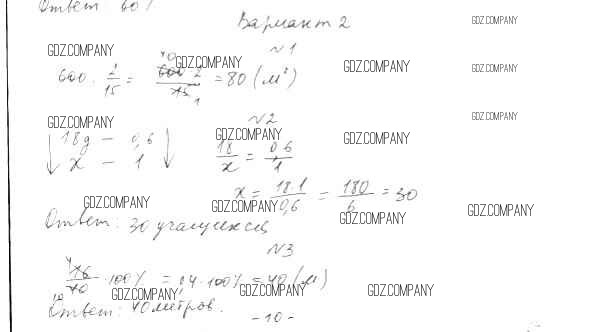 Ответ: 60%
Вариант 2
GDZ.COMPANY
№1
GDZ.COMPANY GDZ.COMPANY GDZ.COMPANY GDZ.COMPANY
600 · 2/15 = 600 · 2/15 = 80 (м²)
40 1
GDZ.COMPANY №2 GDZ.COMPANY
GDZ.COMPANY GDZ.COMPANY
18 – 0,6 18/x = 0,6/1
x – 1
x = 18·1/0,6 = 180/6 = 30
GDZ.COMPANY GDZ.COMPANY GDZ.COMPANY GDZ.COMPANY
Ответ: 30 учащихся
№3
16/40 · 100% = 0,4 · 100% = 40 (м)
4 10
GDZ.COMPANY GDZ.COMPANY GDZ.COMPANY
Ответ: 40 метров.
- 10 -